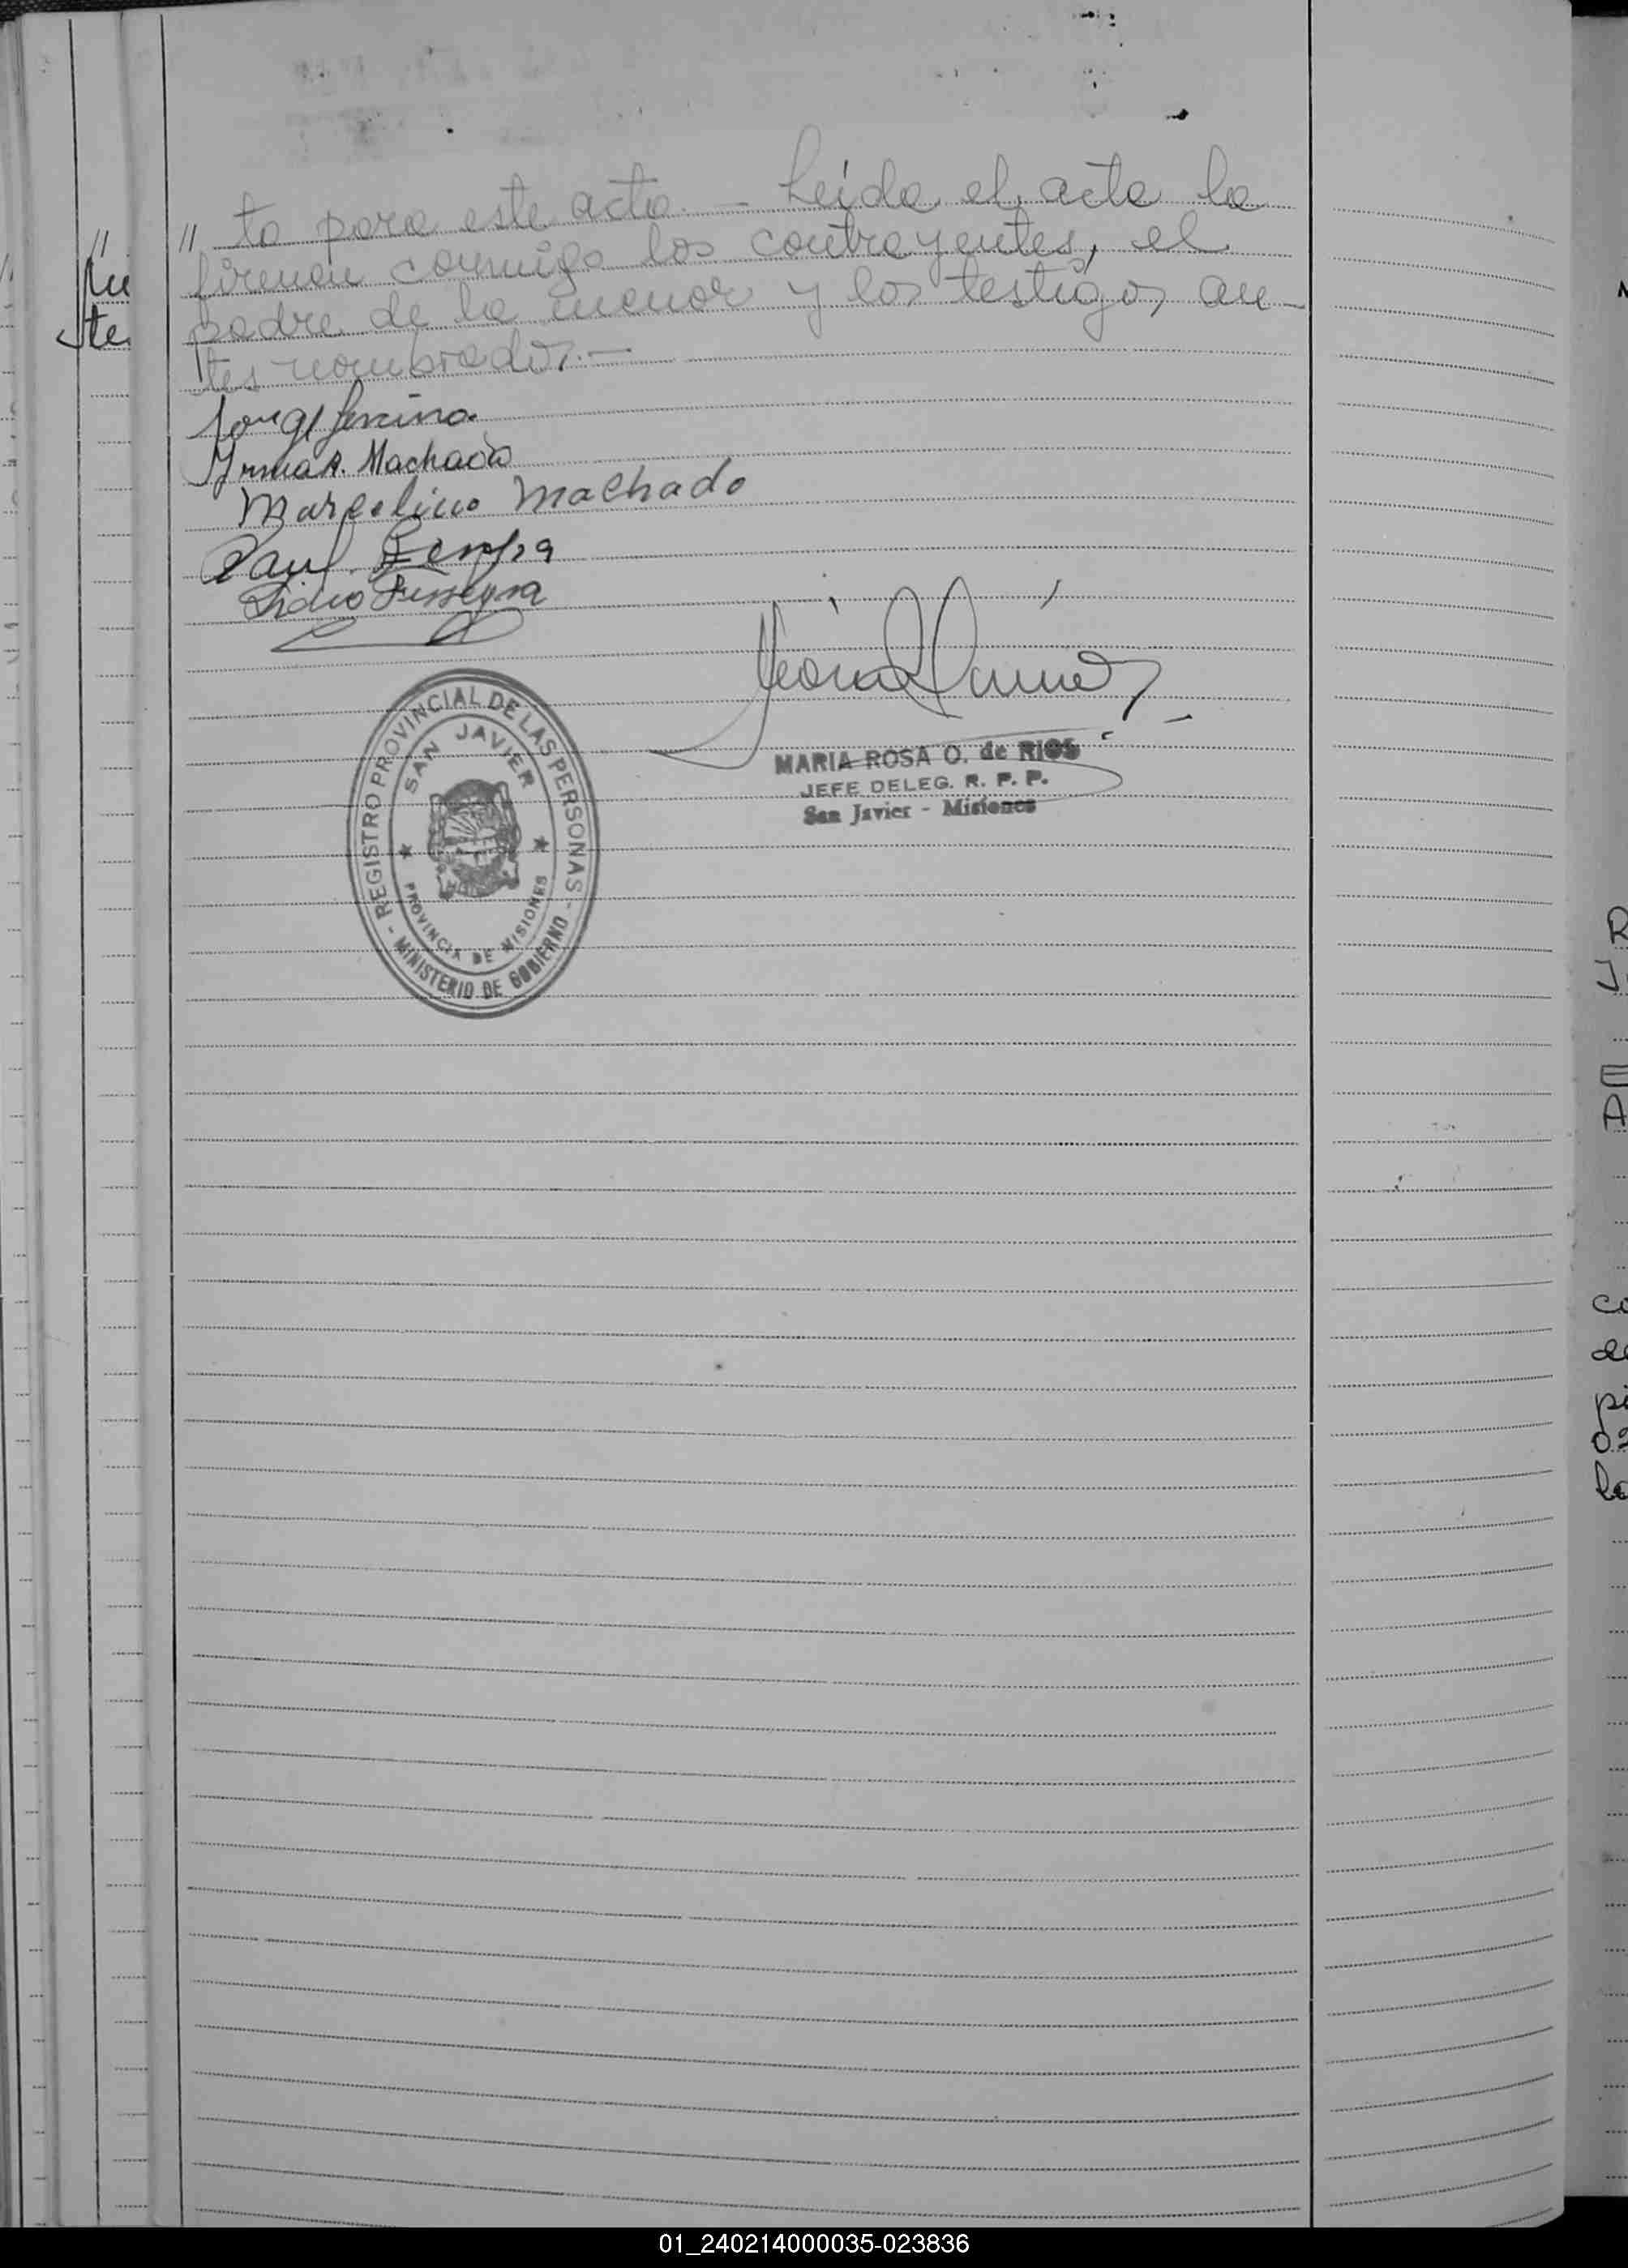 // to para este acto. - Leída el acta la
firman conmigo los contrayentes, el
padre de la menor y los testigos an-
tes nombrados.-
Irma A. Machado
Marcelino Machado
REGISTRO PROVINCIAL DE LAS PERSONAS
SAN JAVIER
PROVINCIA DE MISIONES
- MINISTERIO DE GOBIERNO -
MARIA ROSA O. de RIOS
JEFE DELEG. R. P. P.
San Javier - Misiones
01_240214000035-023836